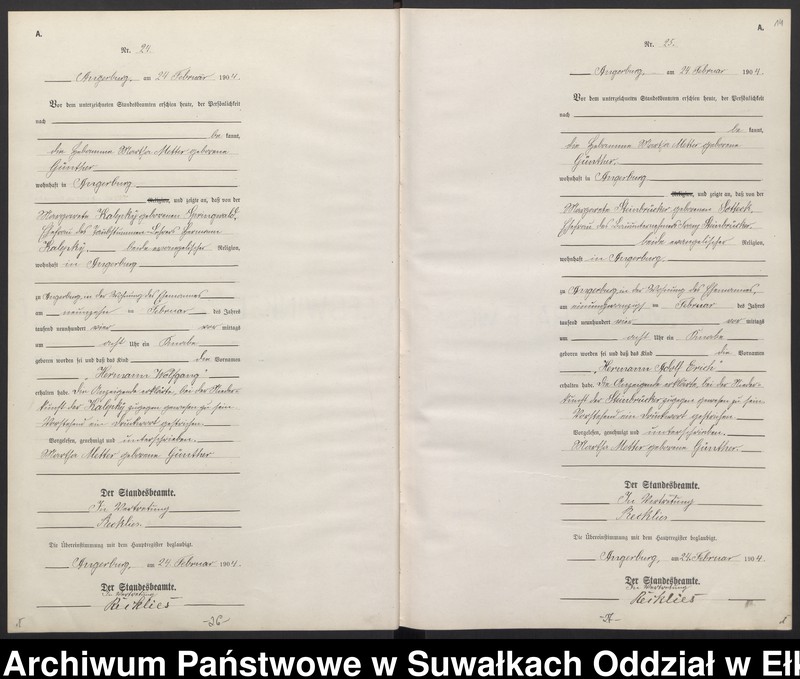 A.
Nr. 24.
Angerburg, am 24 Februar 1904.
Vor dem unterzeichneten Standesbeamten erschien heute, der Persönlichkeit
nach
be kannt,
die Hebamme Martha Motter geborene
Günther
wohnhaft in Angerburg
Religion, und zeigte an, daß von der
Margarete Kalpsky geborenen
Ehefrau des Taubstummen Lehrers Hermann
Kalpsky, beide evangelischer Religion,
wohnhaft in Angerburg
zu Angerburg, in der Wohnung des Ehemannes
am neunzehn ten Februar des Jahres
tausend neunhundert vier vor mittags
um acht Uhr ein Knabe
geboren worden sei und daß das Kind die Vornamen
"Hermann Wolfgang"
erhalten habe. Die Anzeigende erklärte, bei der Nieder-
kunft der Kalpsky zugegen gewesen zu sein
Vorstehend ein Druckwort gestrichen
Vorgelesen, genehmigt und unterschrieben.
Martha Motter geborene Günther
Der Standesbeamte.
In Vertretung
Recklies.
Die Übereinstimmung mit dem Hauptregister beglaubigt.
Angerburg, am 24. Februar 1904.
Der Standesbeamte.
In Vertretung
Recklies
-26-
A.
Nr. 25.
Angerburg, am 24 Februar 1904.
Vor dem unterzeichneten Standesbeamten erschien heute, der Persönlichkeit
nach
be kannt,
die Hebamme Martha Motter geborene
Günther.
wohnhaft in Angerburg
Religion, und zeigte an, daß von der
Margarete Steinbrücker geborenen
Ehefrau des Bauunternehmers Steinbrücker,
beide evangelischer Religion,
wohnhaft in Angerburg.
zu Angerburg, in der Wohnung des Ehemannes,
am einundzwanzigsten Februar des Jahres
tausend neunhundert vier vor mittags
um acht Uhr ein Knabe
geboren worden sei und daß das Kind die Vornamen
"Hermann Adolf Erich"
erhalten habe. Die Anzeigende erklärte, bei der Nieder-
kunft der Steinbrücker zugegen gewesen zu sein.
Vorstehend ein Druckwort gestrichen.
Vorgelesen, genehmigt und unterschrieben.
Martha Motter geborene Günther.
Der Standesbeamte.
In Vertretung
Recklies
Die Übereinstimmung mit dem Hauptregister beglaubigt.
Angerburg, am 24. Februar 1904.
Der Standesbeamte.
In Vertretung
Recklies
Archiwum Państwowe w Suwałkach Oddział w Ełk